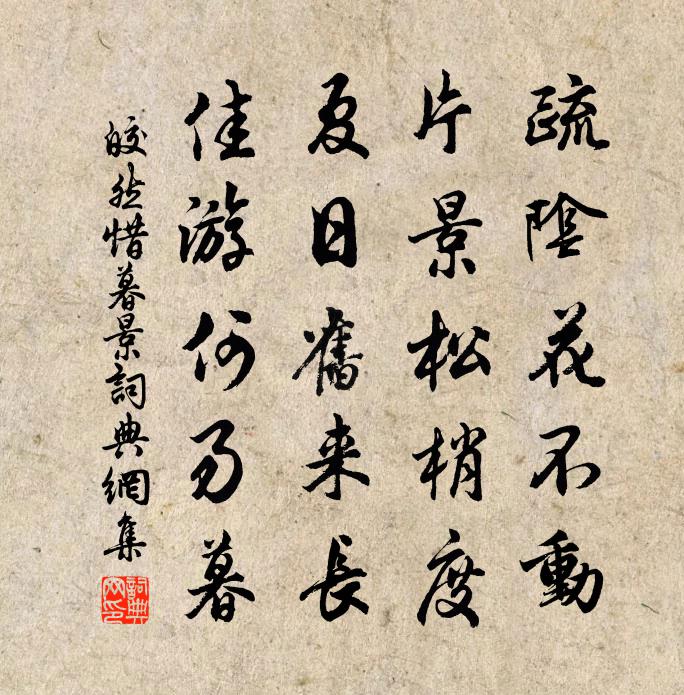 疏陰花不動
片景松梢度
夏日舊来長
佳游何易暮
皎然惜暮景詞典網集
詞典網印